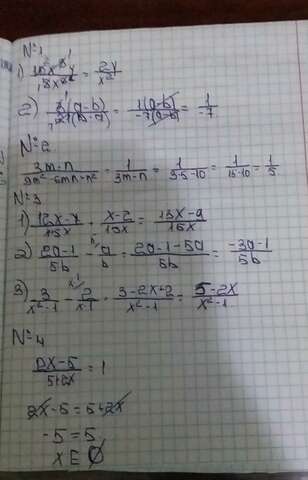 №1
1) 16x³y / 8x⁵ = 2y / x²
2) 3(a-b) / 21(b-a) = 1(a-b) / -7(a-b) = 1 / -7
№2
3m-n / 9m²-6mn+n² = 1 / 3m-n = 1 / 3·5-10 = 1 / 15-10 = 1 / 5
№3
1) 12x-7 / 15x + x-2 / 15x = 13x-9 / 15x
2) 2a-1 / 5b - a / b = 2a-1-5a / 5b = -3a-1 / 5b
3) 3 / x²-1 - 2 / x-1 = 3-2x+2 / x²-1 = 5-2x / x²-1
№4
2x-5 / 5+2x = 1
2x-5 = 5+2x
-5 = 5
x ∈ ∅